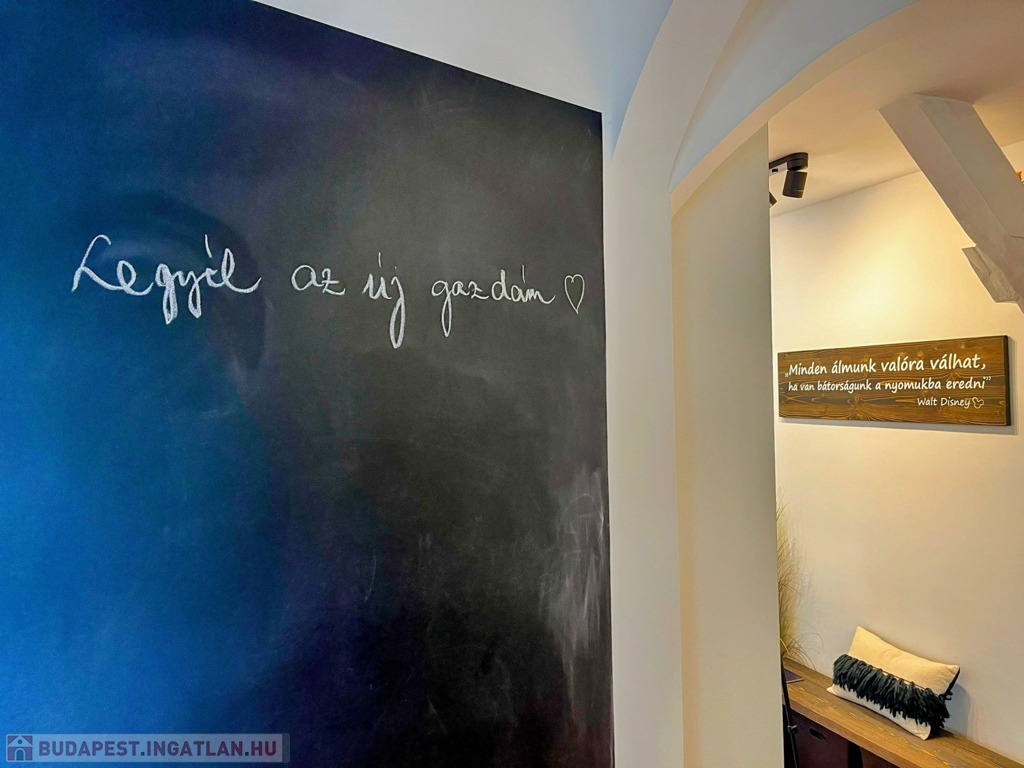 Legyél az új gazdám ♡
„Minden álmunk valóra válhat,
ha van bátorságunk a nyomukba eredni”
Walt Disney
BUDAPEST.INGATLAN.HU